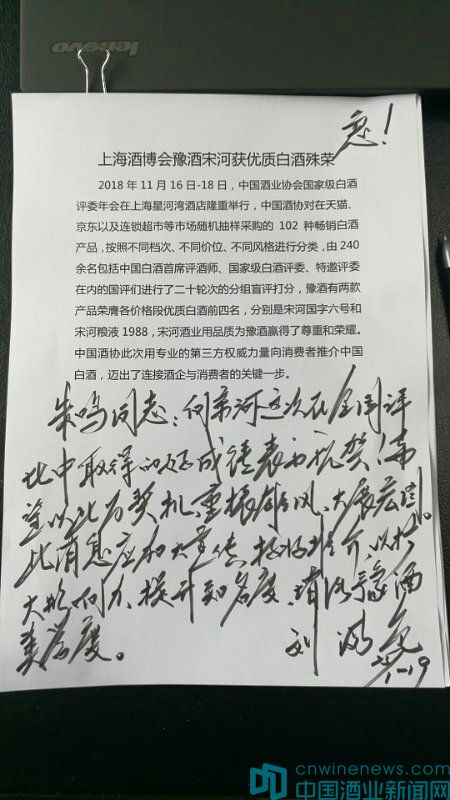 lenovo
急!
上海酒博会豫酒宋河获优质白酒殊荣
2018 年 11 月 16 日-18 日，中国酒业协会国家级白酒
评委年会在上海星河湾酒店隆重举行，中国酒协对在天猫、
京东以及连锁超市等市场随机抽样采购的 102 种畅销白酒
产品，按照不同档次、不同价位、不同风格进行分类，由 240
余名包括中国白酒首席评酒师、国家级白酒评委、特邀评委
在内的国评们进行了二十轮次的分组盲评打分，豫酒有两款
产品荣膺各价格段优质白酒前四名，分别是宋河国字六号和
宋河粮液 1988，宋河酒业用品质为豫酒赢得了尊重和荣耀。
中国酒协此次用专业的第三方权威力量向消费者推介中国
白酒，迈出了连接酒企与消费者的关键一步。
朱鸣同志：向宋河这次在全国评
比中取得的好成绩表示祝贺！希
望以此为契机，重振雄风，大展宏图
此消息应加大宣传，推介，以扩
大影响力，提升知名度，豫酒
美誉度。
刘满仓
11-19
cnwinenews.com
中国酒业新闻网